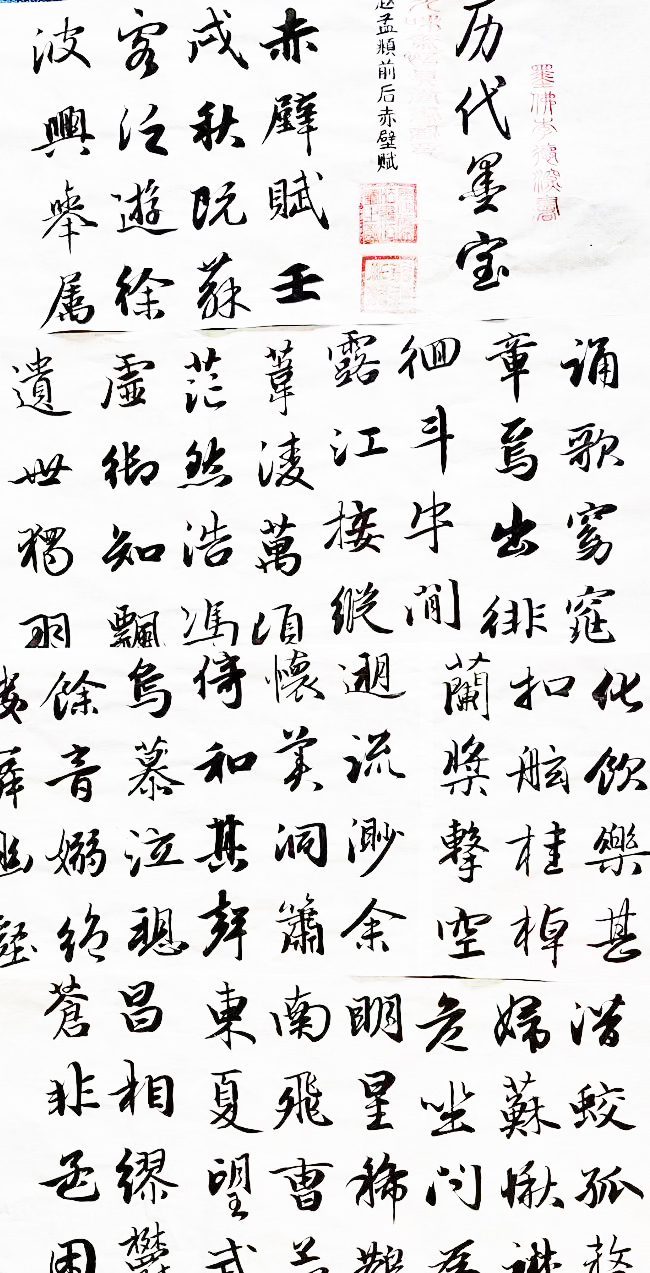 历代墨宝
赵孟頫前后赤壁赋
赤壁賦壬
戌秋既蘇
客泛遊徐
波興舉属
誦歌窈窕
章焉出徘
徊斗牛間
露江接縱
葦凌萬頃
茫然浩馮
虚御知飄
遺世獨羽
化飲樂甚
扣舷桂棹
蘭槳擊空
溯流渺余
懷美洞簫
倚和其聲
烏慕泣聰
餘音嫋絕
潜蛟孤
婦蘇愀襟
危坐问為
明星稀鵲
南飛曹
東夏望武
昌相繆欝
蒼非孟困